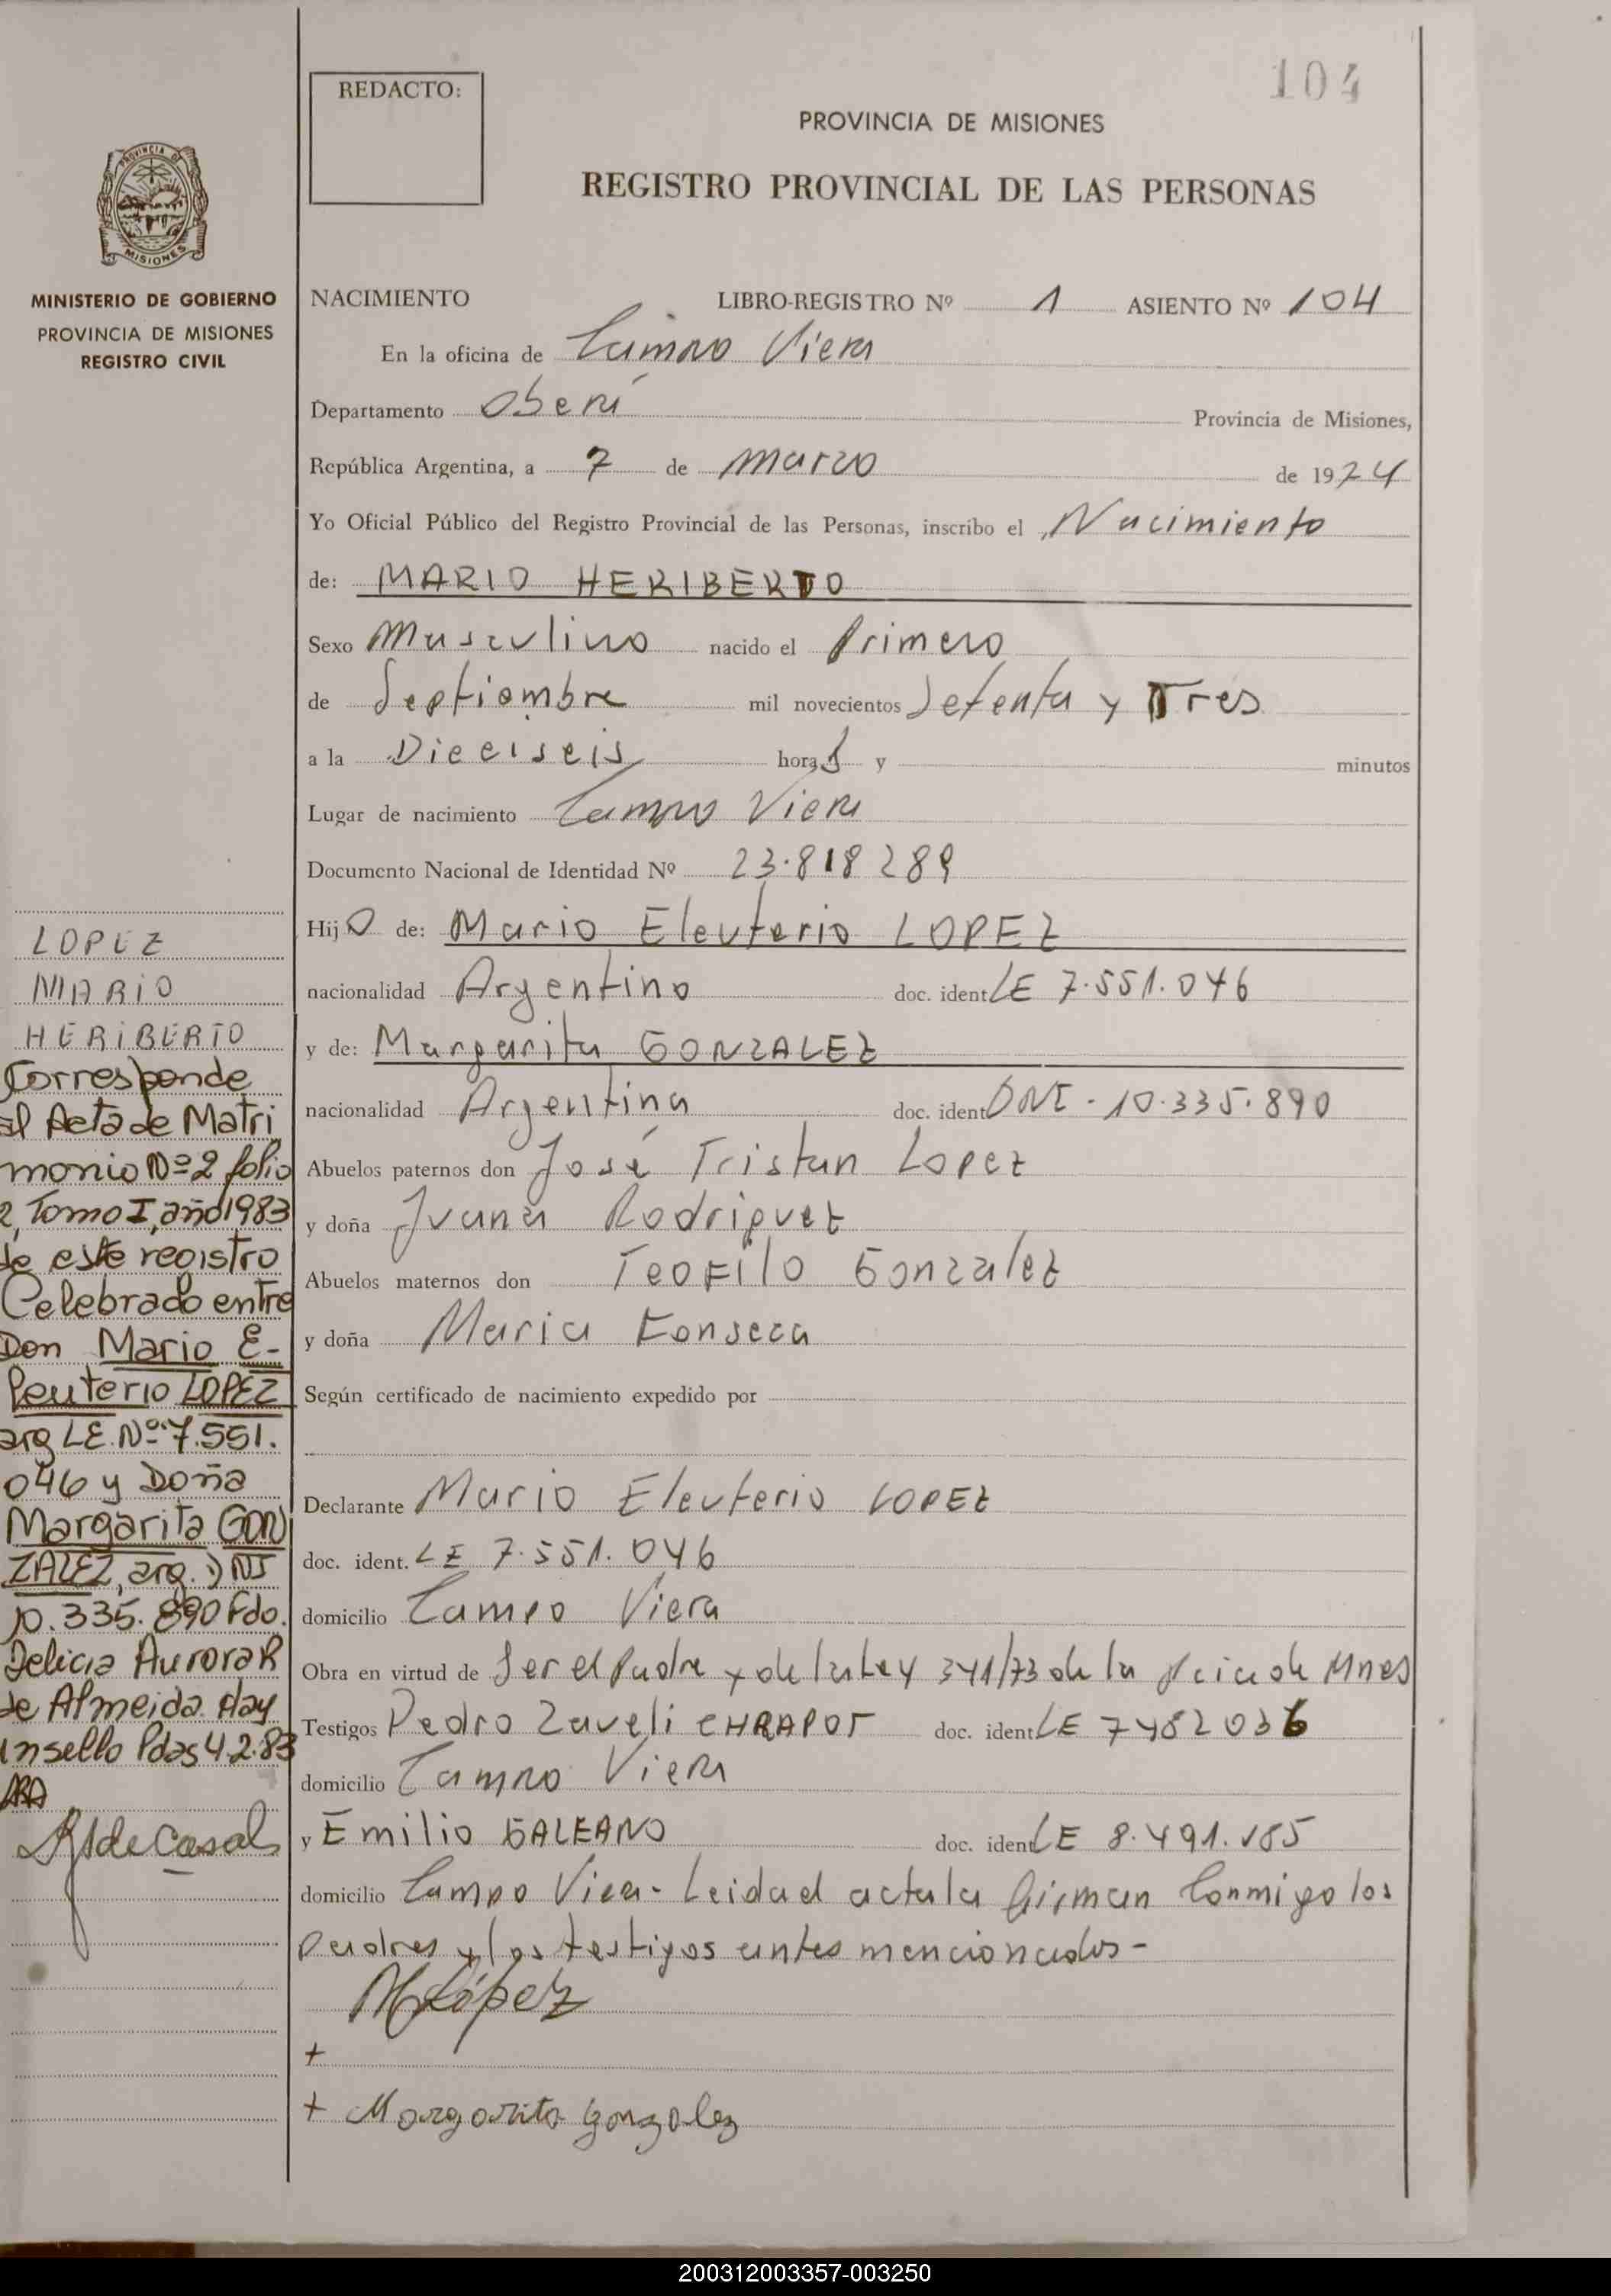 104
REDACTO:
PROVINCIA DE MISIONES
REGISTRO PROVINCIAL DE LAS PERSONAS
PROVINCIA DE
MISIONES
MINISTERIO DE GOBIERNO
PROVINCIA DE MISIONES
REGISTRO CIVIL
NACIMIENTO LIBRO-REGISTRO Nº 1 ASIENTO Nº 104
En la oficina de Campo Viera
Departamento Oberá Provincia de Misiones,
República Argentina, a 7 de marzo de 1974
Yo Oficial Público del Registro Provincial de las Personas, inscribo el Nacimiento
de: MARIO HERIBERTO
Sexo Masculino nacido el Primero
de Septiembre mil novecientos Setenta y Tres
a la Dieciseis horas y minutos
Lugar de nacimiento Campo Viera
Documento Nacional de Identidad Nº 23.818289
Hijo de: Mario Eleuterio LOPEZ
nacionalidad Argentino doc. ident LE 7.551.046
y de: Margarita GONZALEZ
nacionalidad Argentina doc. ident DNI - 10.335.890
Abuelos paternos don José Tristan Lopez
y doña Juana Rodriguez
Abuelos maternos don Teofilo Gonzalez
y doña Maria Fonseca
Según certificado de nacimiento expedido por
Declarante Mario Eleuterio LOPEZ
doc. ident. LE 7.551.046
domicilio Campo Viera
Obra en virtud de Ser el Padre y de la Ley 341/73 de la Pcia de Mnes
Testigos Pedro Zaveli doc. ident LE 7482036
domicilio Campo Viera
y Emilio GALEANO doc. ident LE 8.491.185
domicilio Campo Viera - Leida el acta la firman Conmigo los
Padres y los testigos antes mencionados -
MLópez
+
+ Margarita Gonzalez
LOPEZ
MARIO
HERIBERTO
Corresponde
al Acta de Matri
monio Nº 2 folio
2, Tomo I, año 1983
de este registro
Celebrado entre
Don Mario E-
leuterio LOPEZ
arg LE. Nº 7.551.
046 y Doña
Margarita GON
ZALEZ, arg. DNI
10.335.890 Fdo.
Delicia Aurora R
de Almeida. Hay
un sello Pdas 4.2.83
de Casal
200312003357-003250